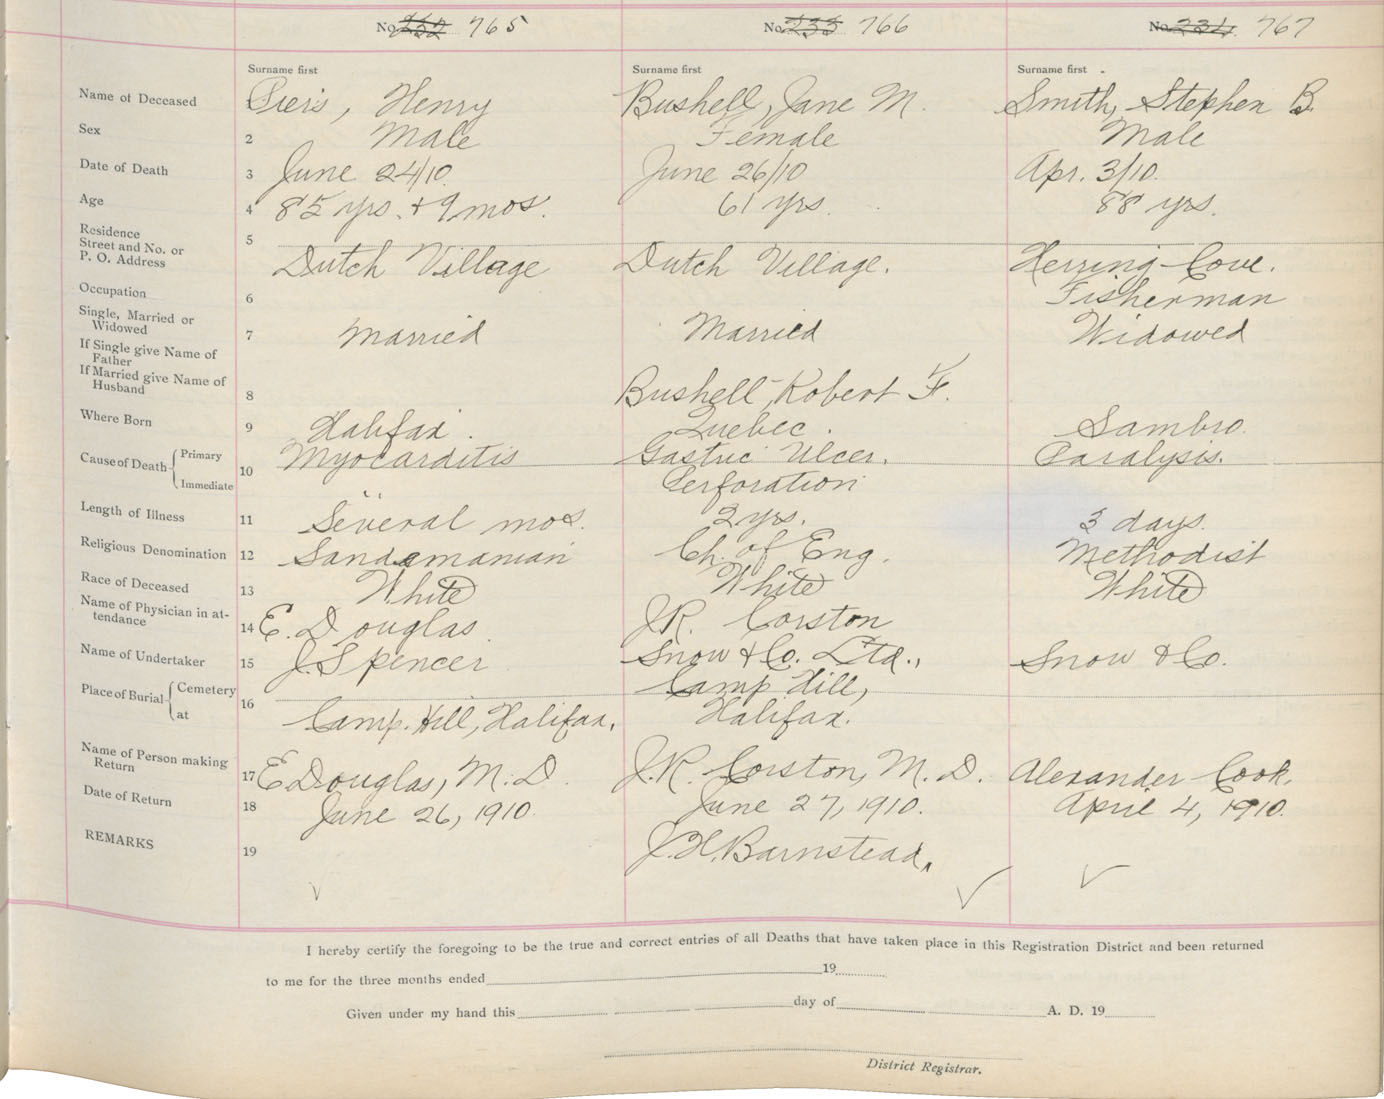 No 232 765 No 233 766 No 234 767
Surname first Surname first Surname first
Name of Deceased Piers, Henry Bushell, Jane M. Smith, Stephen B.
Sex 2 Male Female Male
Date of Death 3 June 24/10. June 26/10 Apr. 3/10.
Age 4 85 yrs. + 9 mos. 61 yrs. 88 yrs.
Residence
Street and No. or 5
P. O. Address Dutch Village Dutch Village. Herring Cove.
Occupation 6 Fisherman
Single, Married or
Widowed 7 Married Married Widowed
If Single give Name of
Father
If Married give Name of
Husband 8 Bushell, Robert F.
Where Born 9 Halifax. Quebec. Sambro.
Cause of Death Primary Myocarditis Gastric Ulcer. Paralysis.
Immediate 10 Perforation
Length of Illness 11 Several mos. 2 yrs. 3 days.
Religious Denomination 12 Sandemanian Ch. of Eng. Methodist
Race of Deceased 13 White White White
Name of Physician in at-
tendance 14 E. Douglas J.R. Corston
Name of Undertaker 15 J. Spencer Snow & Co. Ltd., Snow & Co.
Place of Burial Cemetery 16 Camp Hill,
at Camp. Hill, Halifax, Halifax.
Name of Person making
Return 17 E Douglas, M.D. J.R. Corston, M.D. Alexander Cook.
Date of Return 18 June 26, 1910. June 27, 1910. April 4, 1910.
REMARKS 19 J.H. Barnstead.
I hereby certify the foregoing to be the true and correct entries of all Deaths that have taken place in this Registration District and been returned
to me for the three months ended 19
Given under my hand this day of A. D. 19
District Registrar.